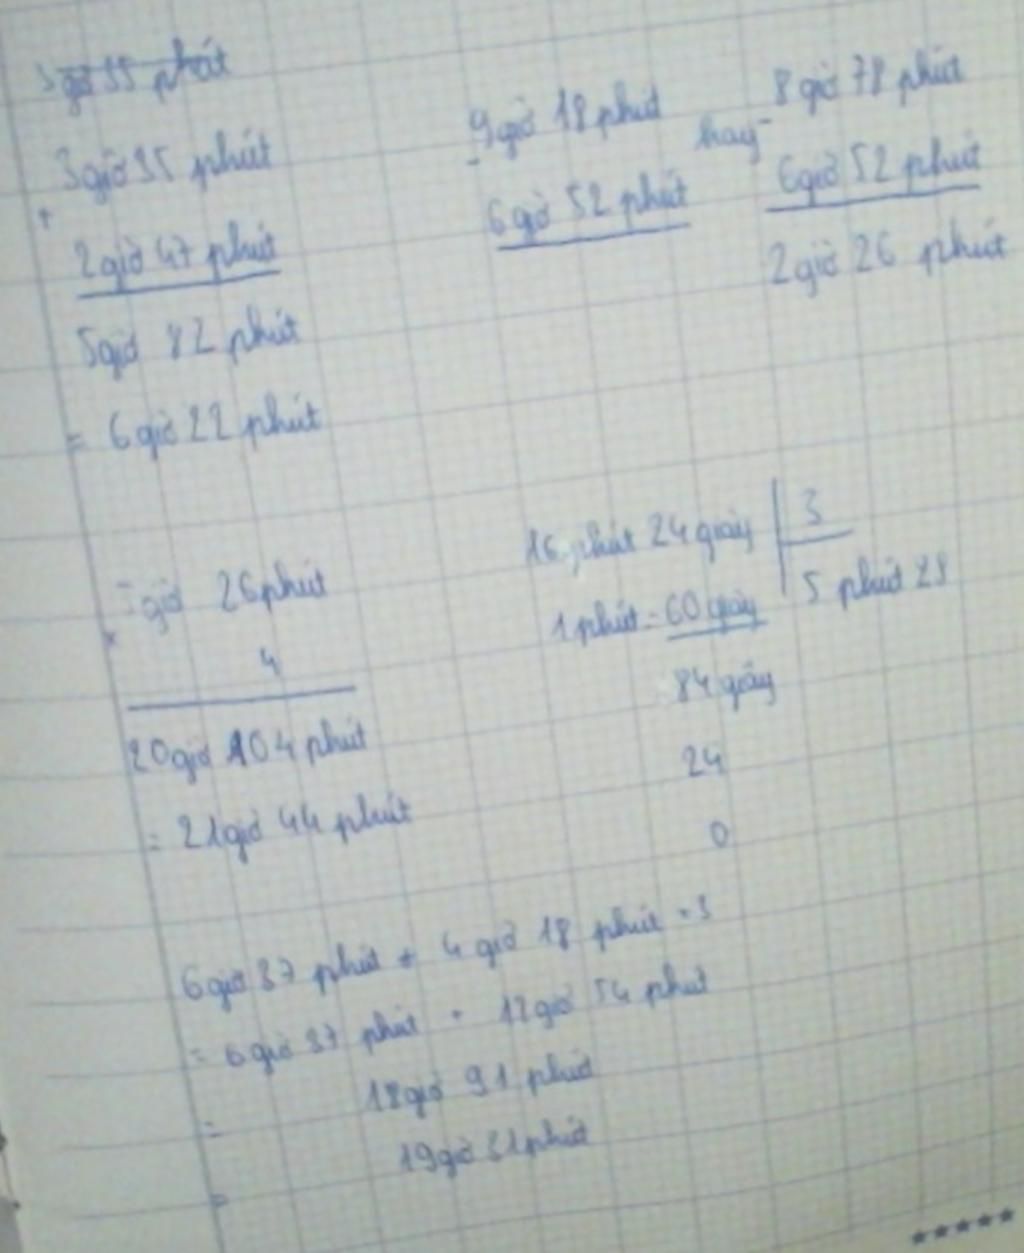 3 giờ 35 phút
3 giờ 35 phút
+
2 giờ 47 phút
5 giờ 82 phút
= 6 giờ 22 phút
9 giờ 18 phút
-
6 giờ 52 phút
hay
8 giờ 78 phút
-
6 giờ 52 phút
2 giờ 26 phút
giờ 26 phút
x
4
20 giờ 104 phút
= 21 giờ 44 phút
16 phút 24 giây 3
1 phút = 60 giây 5 phút 28
84 giây
24
0
6 giờ 37 phút + 4 giờ 18 phút × 3
= 6 giờ 37 phút + 12 giờ 54 phút
= 18 giờ 91 phút
= 19 giờ 31 phút